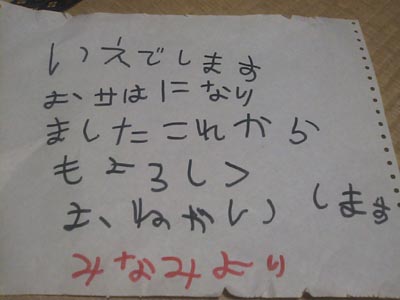 いえでします
おせはになり
ましたこれから
もよろしく
おねがいします
みなみより